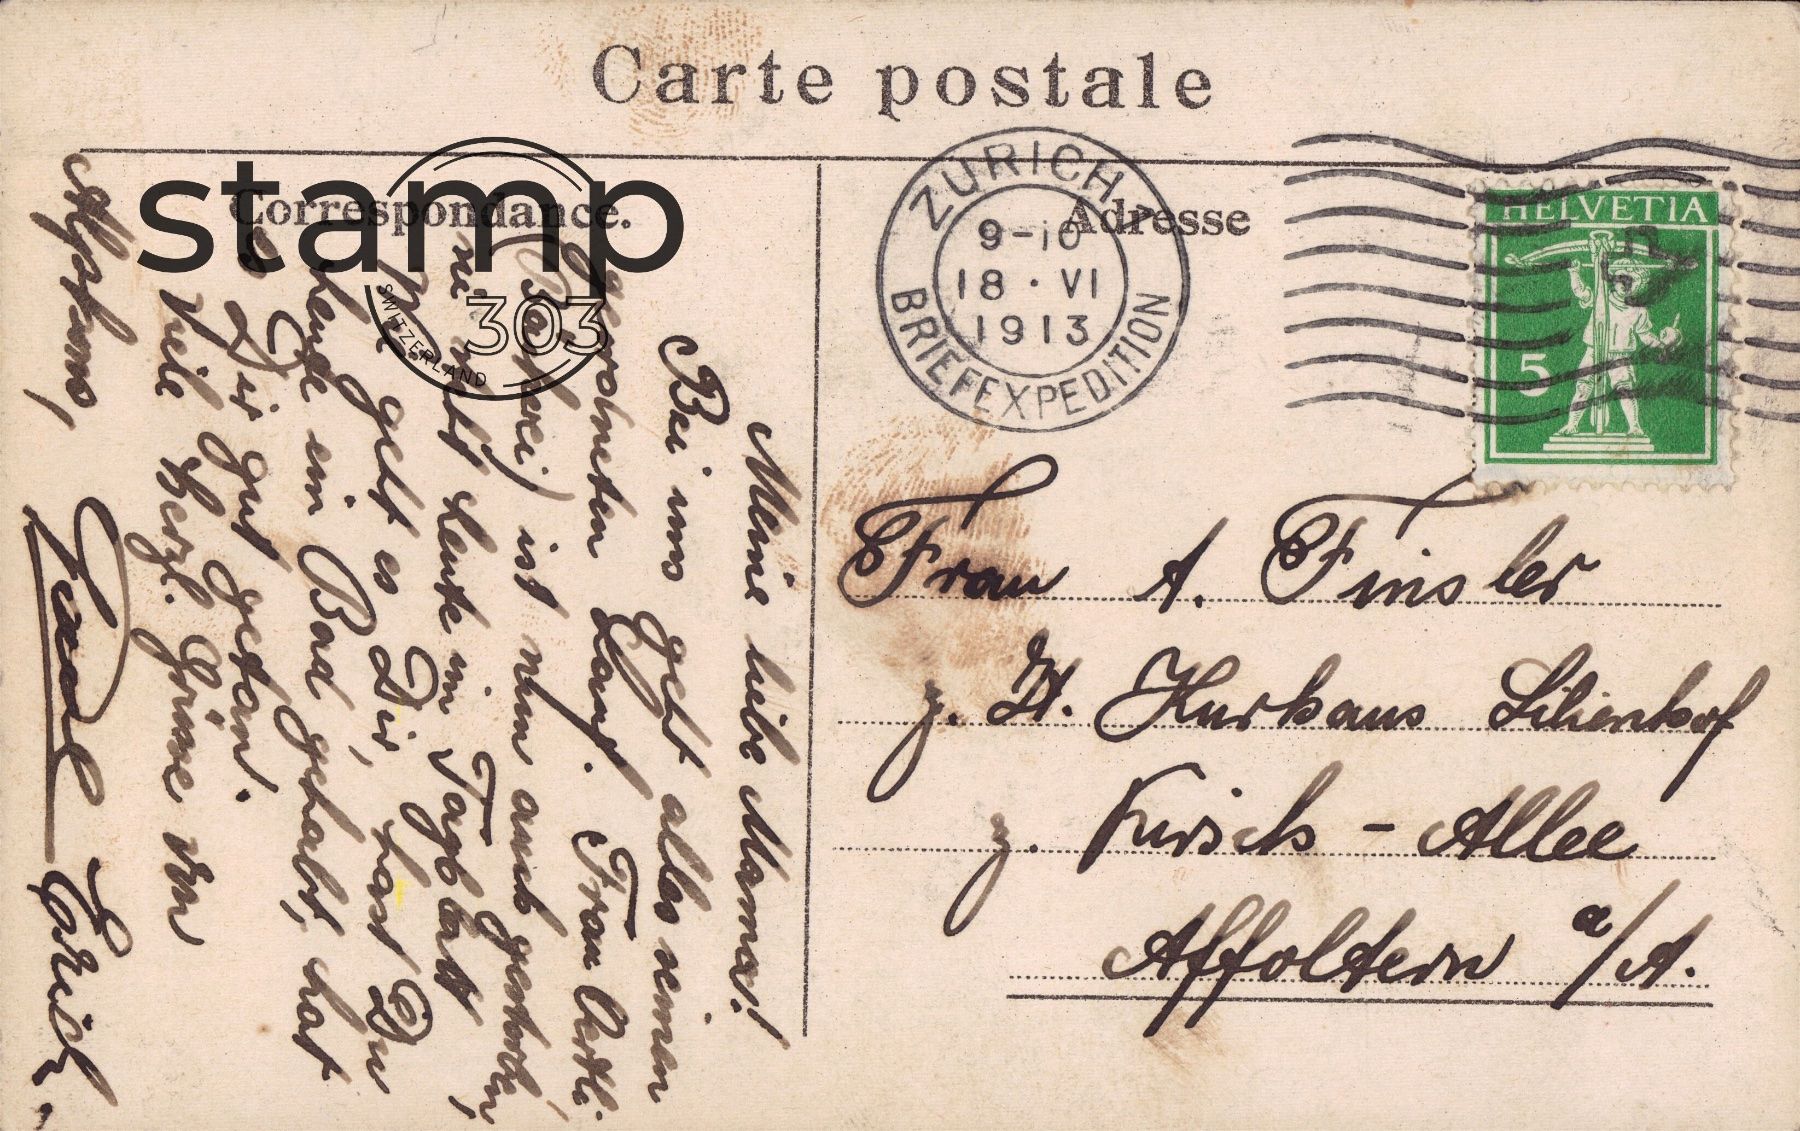 Carte postale
Correspondance.
Adresse
stamp
303
SWITZERLAND
ZÜRICH 1
9-10
18 · VI
1913
BRIEFEXPEDITION
HELVETIA
5
Frau A. Finsler
z. Zt. Kurhaus Lilienhof
z. Kirsch-Allee
Affoltern a/A.
Meine liebe Mamma!
Bei uns geht alles seinen
gewohnten Gang. Frau Oertli
(Bäckerei) ist nun auch gestorben,
heute im Tagblatt,
Wie geht es Dir, hast Du
heute ein Bad gehabt, hat
es Dir gut getan.
Viele herzl. Grüsse von
Alfons,
Erich.